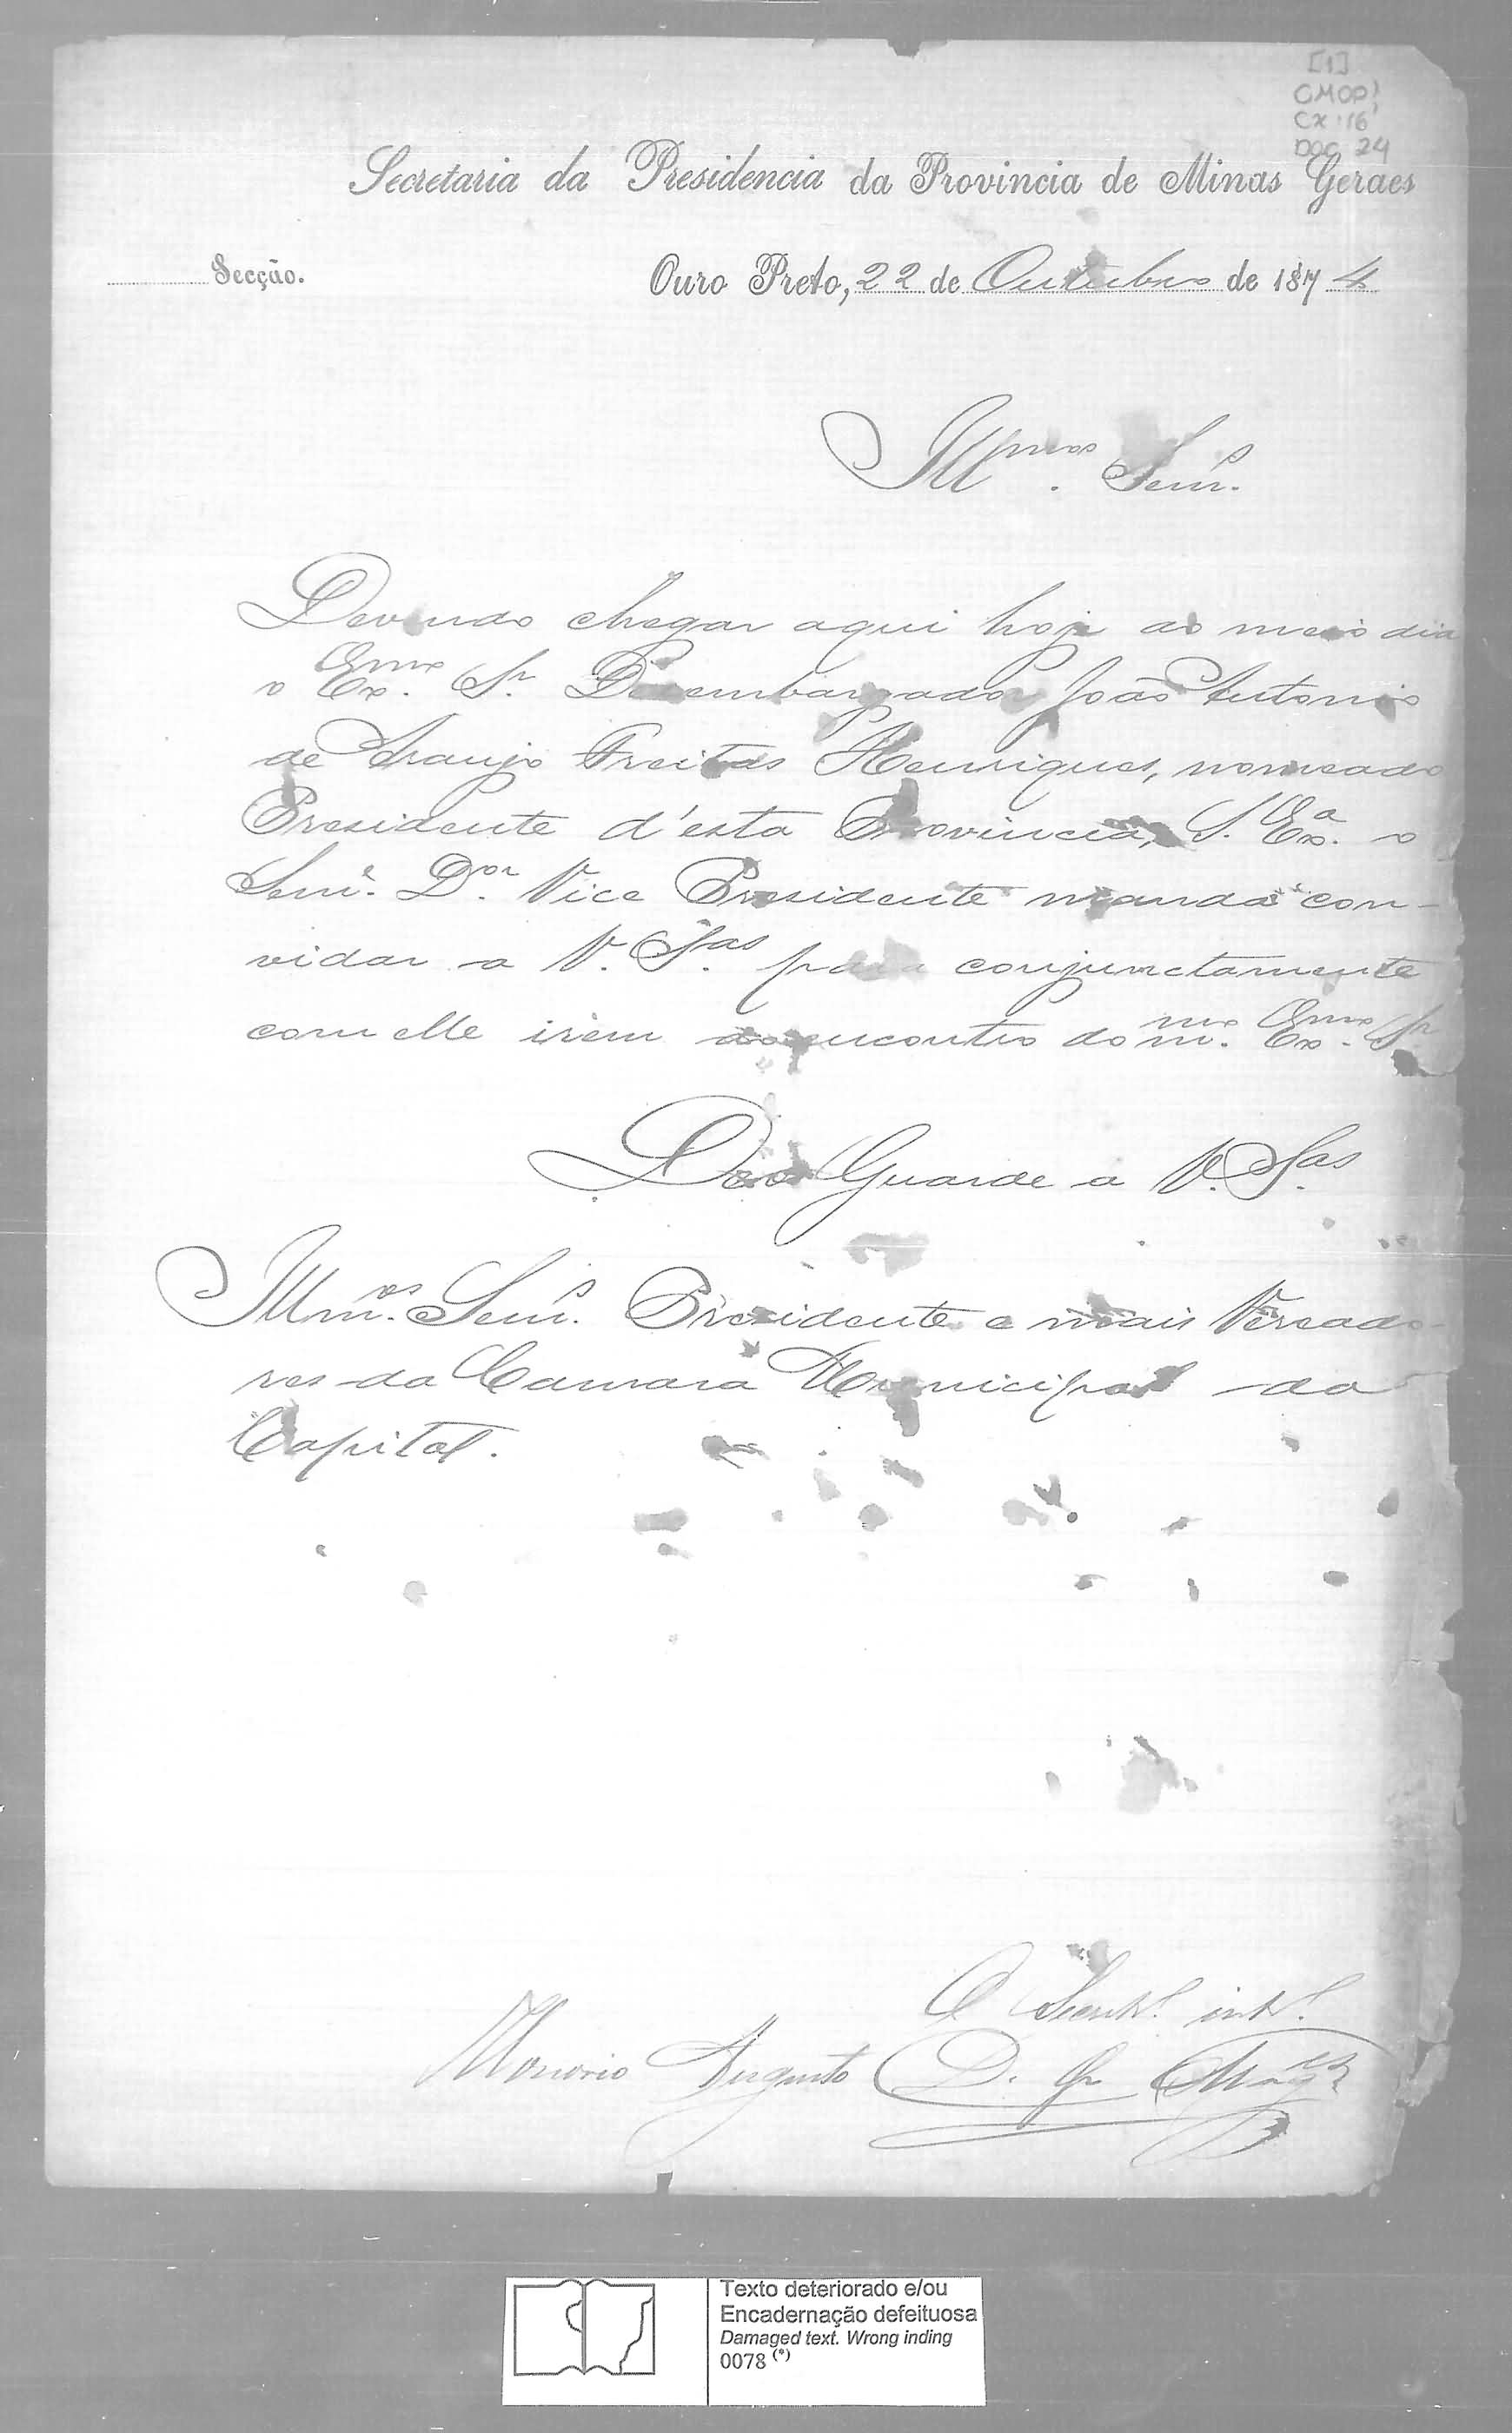 [1]
CMOP
CX 116
DOC 24
Secretaria da Presidencia da Provincia de Minas Geraes
Secção.
Ouro Preto, 22 de Outubro de 1874
Illmos. Senrs.
Devendo chegar aqui hoje ao meio dia
o Exmo. Sr. Desembargador João Antonio
de Araujo Freitas Henriques, nomeado
Presidente d'esta Provincia, S. Exa. o
Senr. Dor. Vice Presidente manda con-
vidar a V. Sas. para conjunctamente
com elle irem ao encontro do mmo. Exmo. Sr.
Deos Guarde a V. Sas.
Illmos. Senrs. Presidente e mais Vereado-
res da Camara Municipal da
Capital.
O Secretro. intro.
Honorio Augusto
Texto deteriorado e/ou
Encadernação defeituosa
Damaged text. Wrong inding
0078 (*)